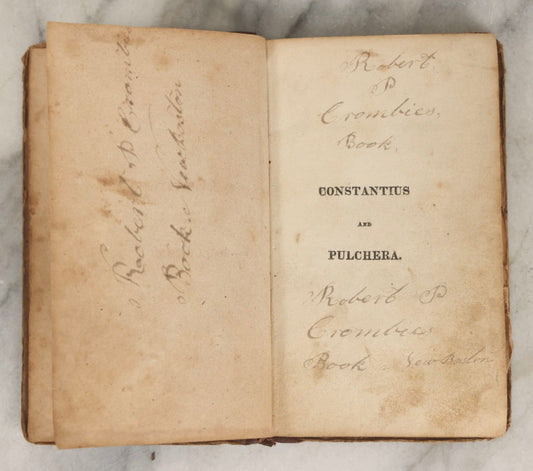 Robert P Crombies
Book New Boston
Robert
P
Crombies,
Book,
CONSTANTIUS
AND
PULCHERA.
Robert P
Crombies
Book New Boston